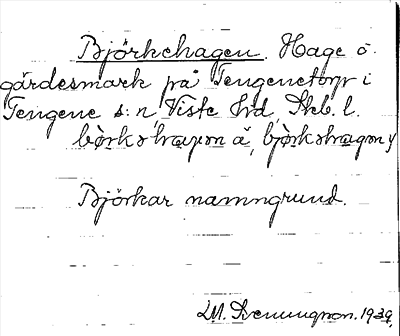 Björkehagen. Hage o.
gärdesmark på Tengenetorp i
Tengene s:n, Viste hd, Skb. l.
bö̀rkshagɔn ä, bjö̀rkshagɔn y
Björkar namngrund.
LM. Svenungson. 1939,